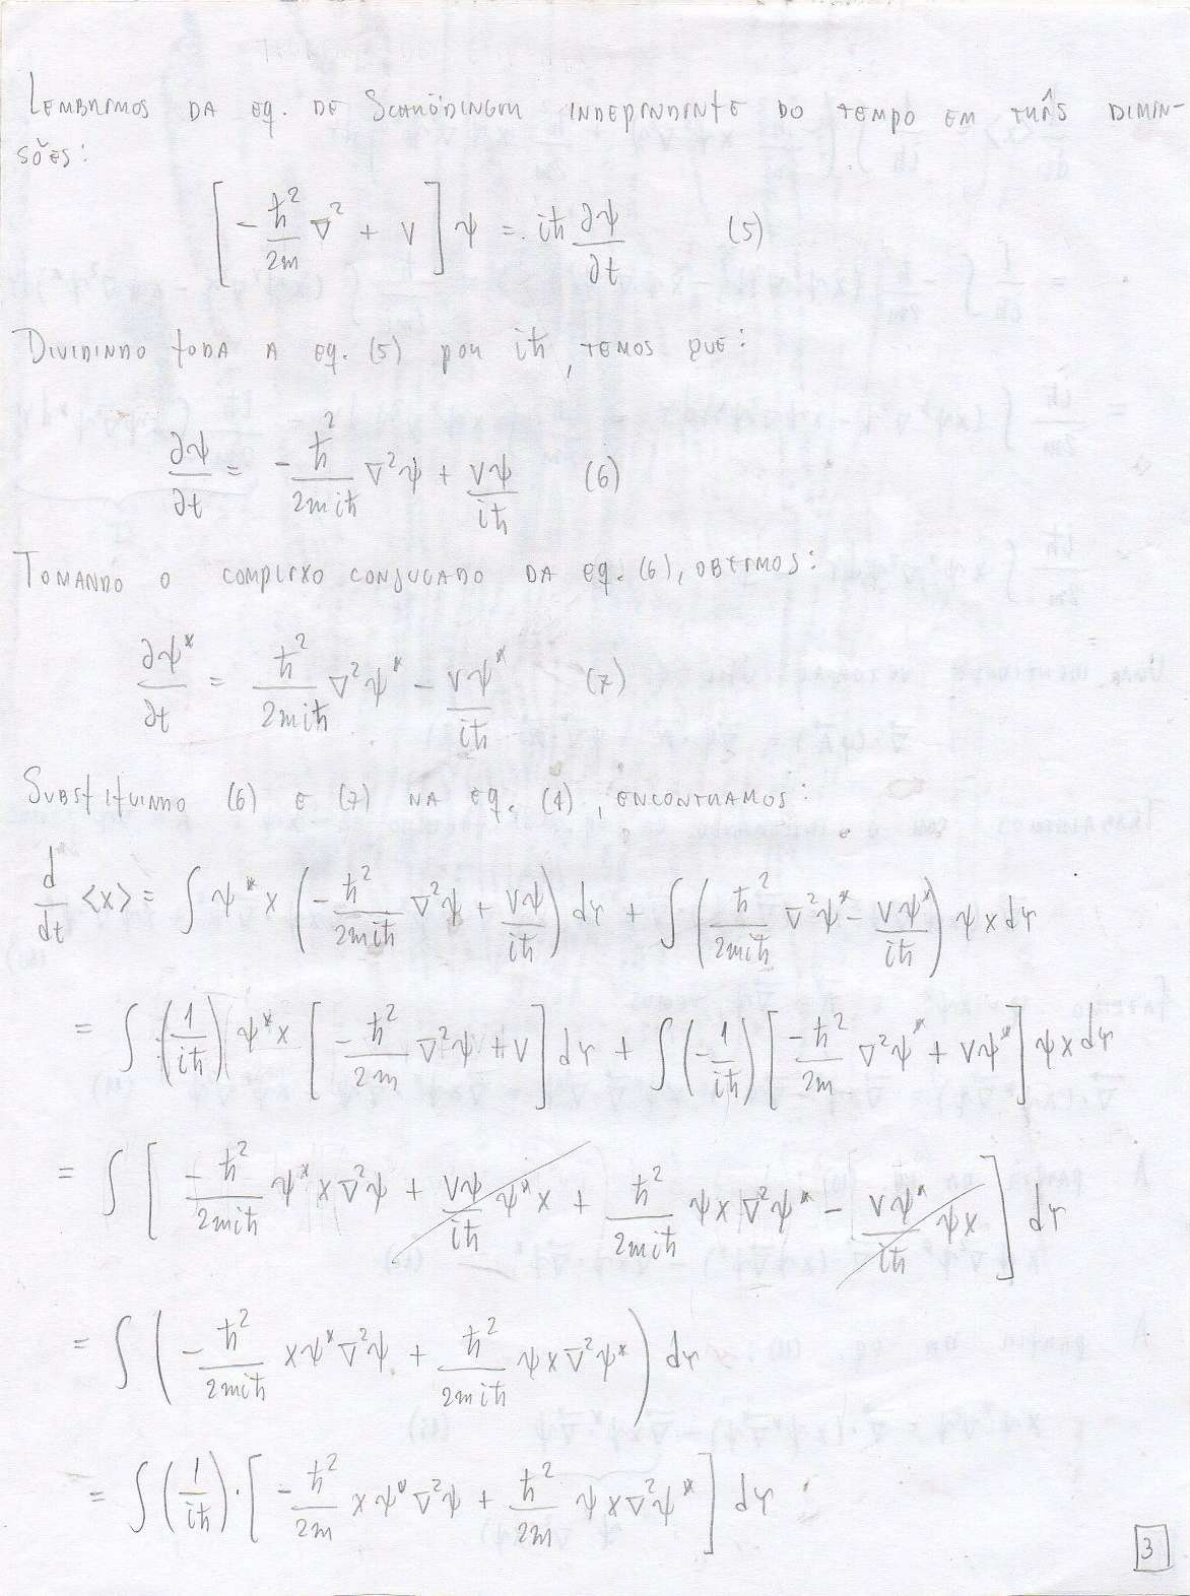 LEMBREMOS DA eq. DE SCHRÖDINGER INDEPENDENTE DO TEMPO EM TRÊS DIMEN-
SÕES:
[-ħ²/2m ∇² + V] ψ = iħ ∂ψ/∂t (5)
DIVIDINDO TODA A eq. (5) por iħ, TEMOS QUE:
∂ψ/∂t = -ħ²/2miħ ∇²ψ + Vψ/iħ (6)
TOMANDO O COMPLEXO CONJUGADO DA eq. (6), OBTEMOS:
∂ψ*/∂t = ħ²/2miħ ∇²ψ* - Vψ*/iħ (7)
SUBSTITUINDO (6) E (7) NA eq. (4), ENCONTRAMOS:
d/dt <x> = ∫ ψ* x (-ħ²/2miħ ∇²ψ + Vψ/iħ) dr + ∫ (ħ²/2miħ ∇²ψ* - Vψ*/iħ) ψ x dr
= ∫ (1/iħ) ψ* x [-ħ²/2m ∇²ψ + V] dr + ∫ (-1/iħ) [-ħ²/2m ∇²ψ* + Vψ*] ψ x dr
= ∫ [-ħ²/2miħ ψ* x ∇²ψ + Vψ/iħ ψ* x + ħ²/2miħ ψ x ∇²ψ* - Vψ*/iħ ψ x] dr
= ∫ (-ħ²/2miħ x ψ* ∇²ψ + ħ²/2miħ ψ x ∇²ψ*) dr
= ∫ (1/iħ) · [-ħ²/2m x ψ* ∇²ψ + ħ²/2m ψ x ∇²ψ*] dr
3